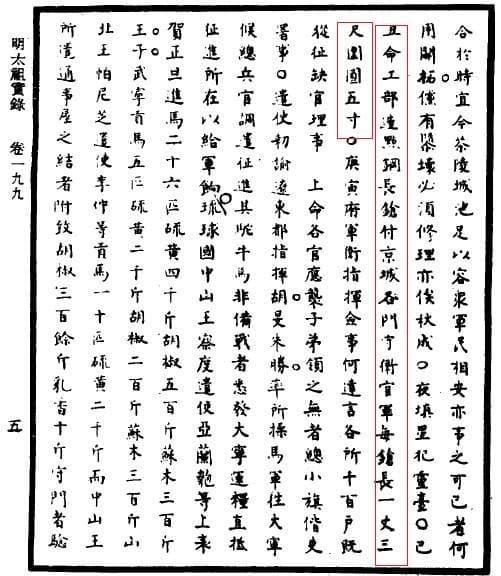 合於時宜今茶陵城池足以容眾軍民相安亦事之可已者何
用開拓儻有隳壞必須修理亦俟秋成○夜填星犯靈臺○己
丑命工部造點鋼長鎗付京城各門守衛官軍每鎗長一丈三
尺圍圓五寸○庚寅府軍衛指揮僉事何遠言各所千百戶既
從征缺官理事　上命各官應襲子弟領之無者總小旗借吏
署事○遣使勑諭遼東都指揮胡旻朱勝率所操馬軍往大寧
候總兵官調遣征進其駝牛馬非備戰者悉發大寧運糧直抵
征進所在以給軍餉○琉球國中山王察度遣使亞蘭匏等上表
賀正旦進馬二十六匹硫黃四千斤胡椒五百斤蘇木三百斤
王子武寧貢馬五匹硫黃二千斤胡椒二百斤蘇木三百斤山
北王怕尼芝遣使李仲等貢馬一十匹硫黃二千斤而中山王
所遣通事屋之結者附致胡椒三百餘斤乳香十斤守門者驗
明太祖實錄　卷一九九
五